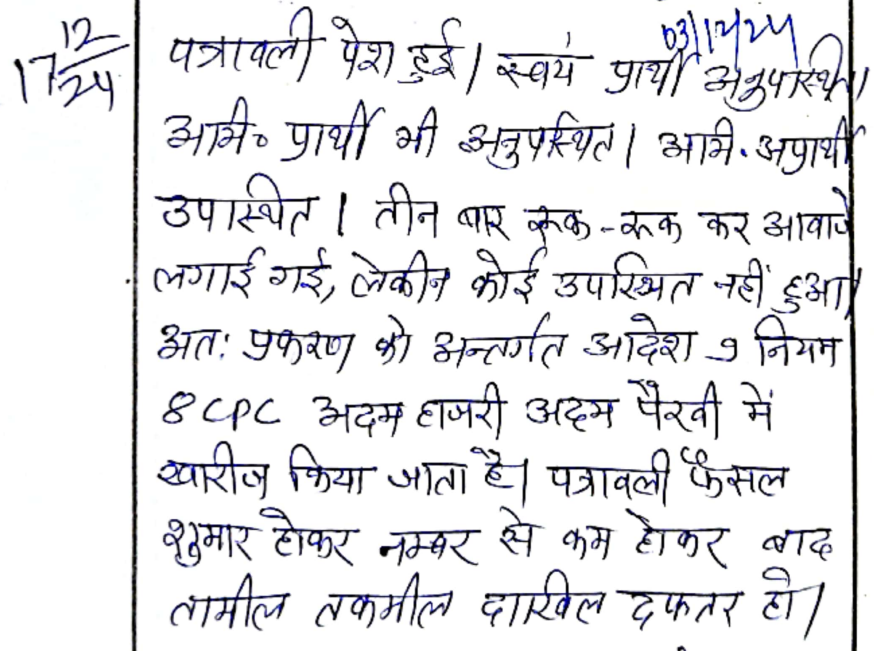 03/12/24
17 12/24 पत्रावली पेश हुई। स्वयं प्रार्थी अनुपस्थित।
अभि० प्रार्थी भी अनुपस्थित। अभि. अप्रार्थी
उपस्थित। तीन बार रूक-रूक कर आवाजे
लगाई गई, लेकीन कोई उपस्थित नहीं हुआ।
अत: प्रकरण को अन्तर्गत आदेश 9 नियम
8 CPC अदम हाजरी अदम पैरवी में
खारीज किया जाता है। पत्रावली फैसल
शुमार होकर नम्बर से कम होकर बाद
तामील तकमील दाखिल दफ्तर हो।